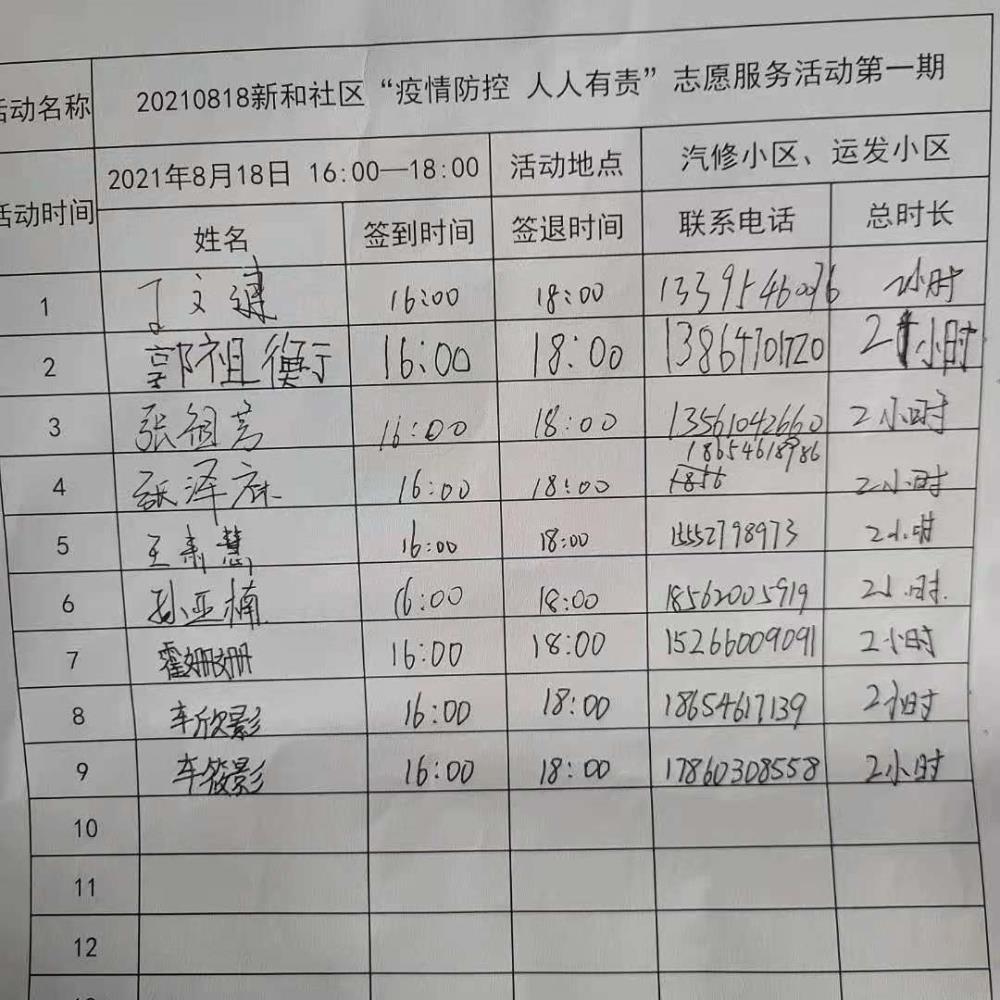 活动名称 20210818新和社区“疫情防控 人人有责”志愿服务活动第一期
活动时间 2021年8月18日 16:00—18:00 活动地点 汽修小区、运发小区
姓名 签到时间 签退时间 联系电话 总时长
1 丁文 16:00 18:00 13395460076 2小时
2 郭祖衡 16:00 18:00 13864701720 2小时
3 张祖芳 16:00 18:00 13561042660 2小时
18654618986
4 张泽 16:00 18:00 1856 2小时
5 王 慧 16:00 18:00 15552798973 2小时
6 孙亚楠 16:00 18:00 18562005919 2小时
7 霍姗姗 16:00 18:00 15266009091 2小时
8 车欣影 16:00 18:00 18654617139 2小时
9 车筱影 16:00 18:00 17860308558 2小时
10
11
12